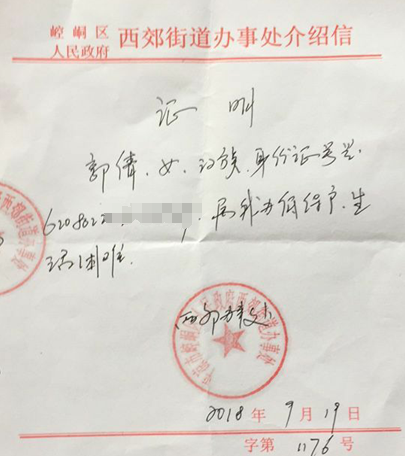 崆峒区
人民政府 西郊街道办事处介绍信
证明
郭倩、女、汉族、身份证号是:
6208022 , 属我办低保户、生
活困难.
西郊办事处
2018年9月19日
字第1176号